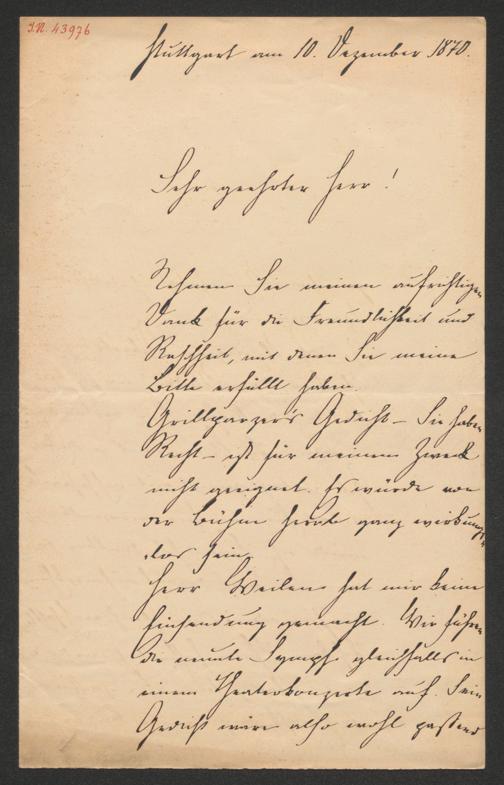 I.N. 43976
Stuttgart am 10. Dezember 1870.
Sehr geehrter Herr!
Nehmen Sie meinen aufrichtigen
Dank für die Freundlichkeit und
Raschheit, mit denen Sie meine
Bitte erfüllt haben.
Grillparzer's Gedicht – Sie haben
Recht – ist für meinen Zweck
nicht geeignet. Es würde von
der Bühne herab ganz wirkungs
los sein.
Herr Weilen hat mir keine
Einsendung gemacht. Wir führen
die neunte Symph. gleichfalls in
einem Theaterkonzerte auf. Sein
Gedicht wäre also wohl passend